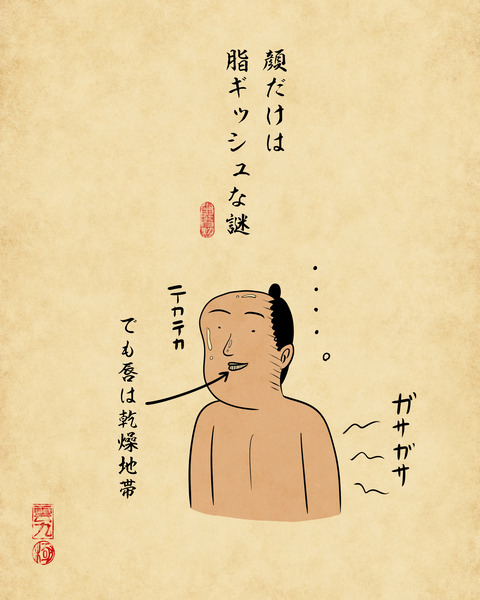 顔だけは
脂ギッシュな謎
・・・・。
テカテカ
でも唇は乾燥地帯
ガサガサ